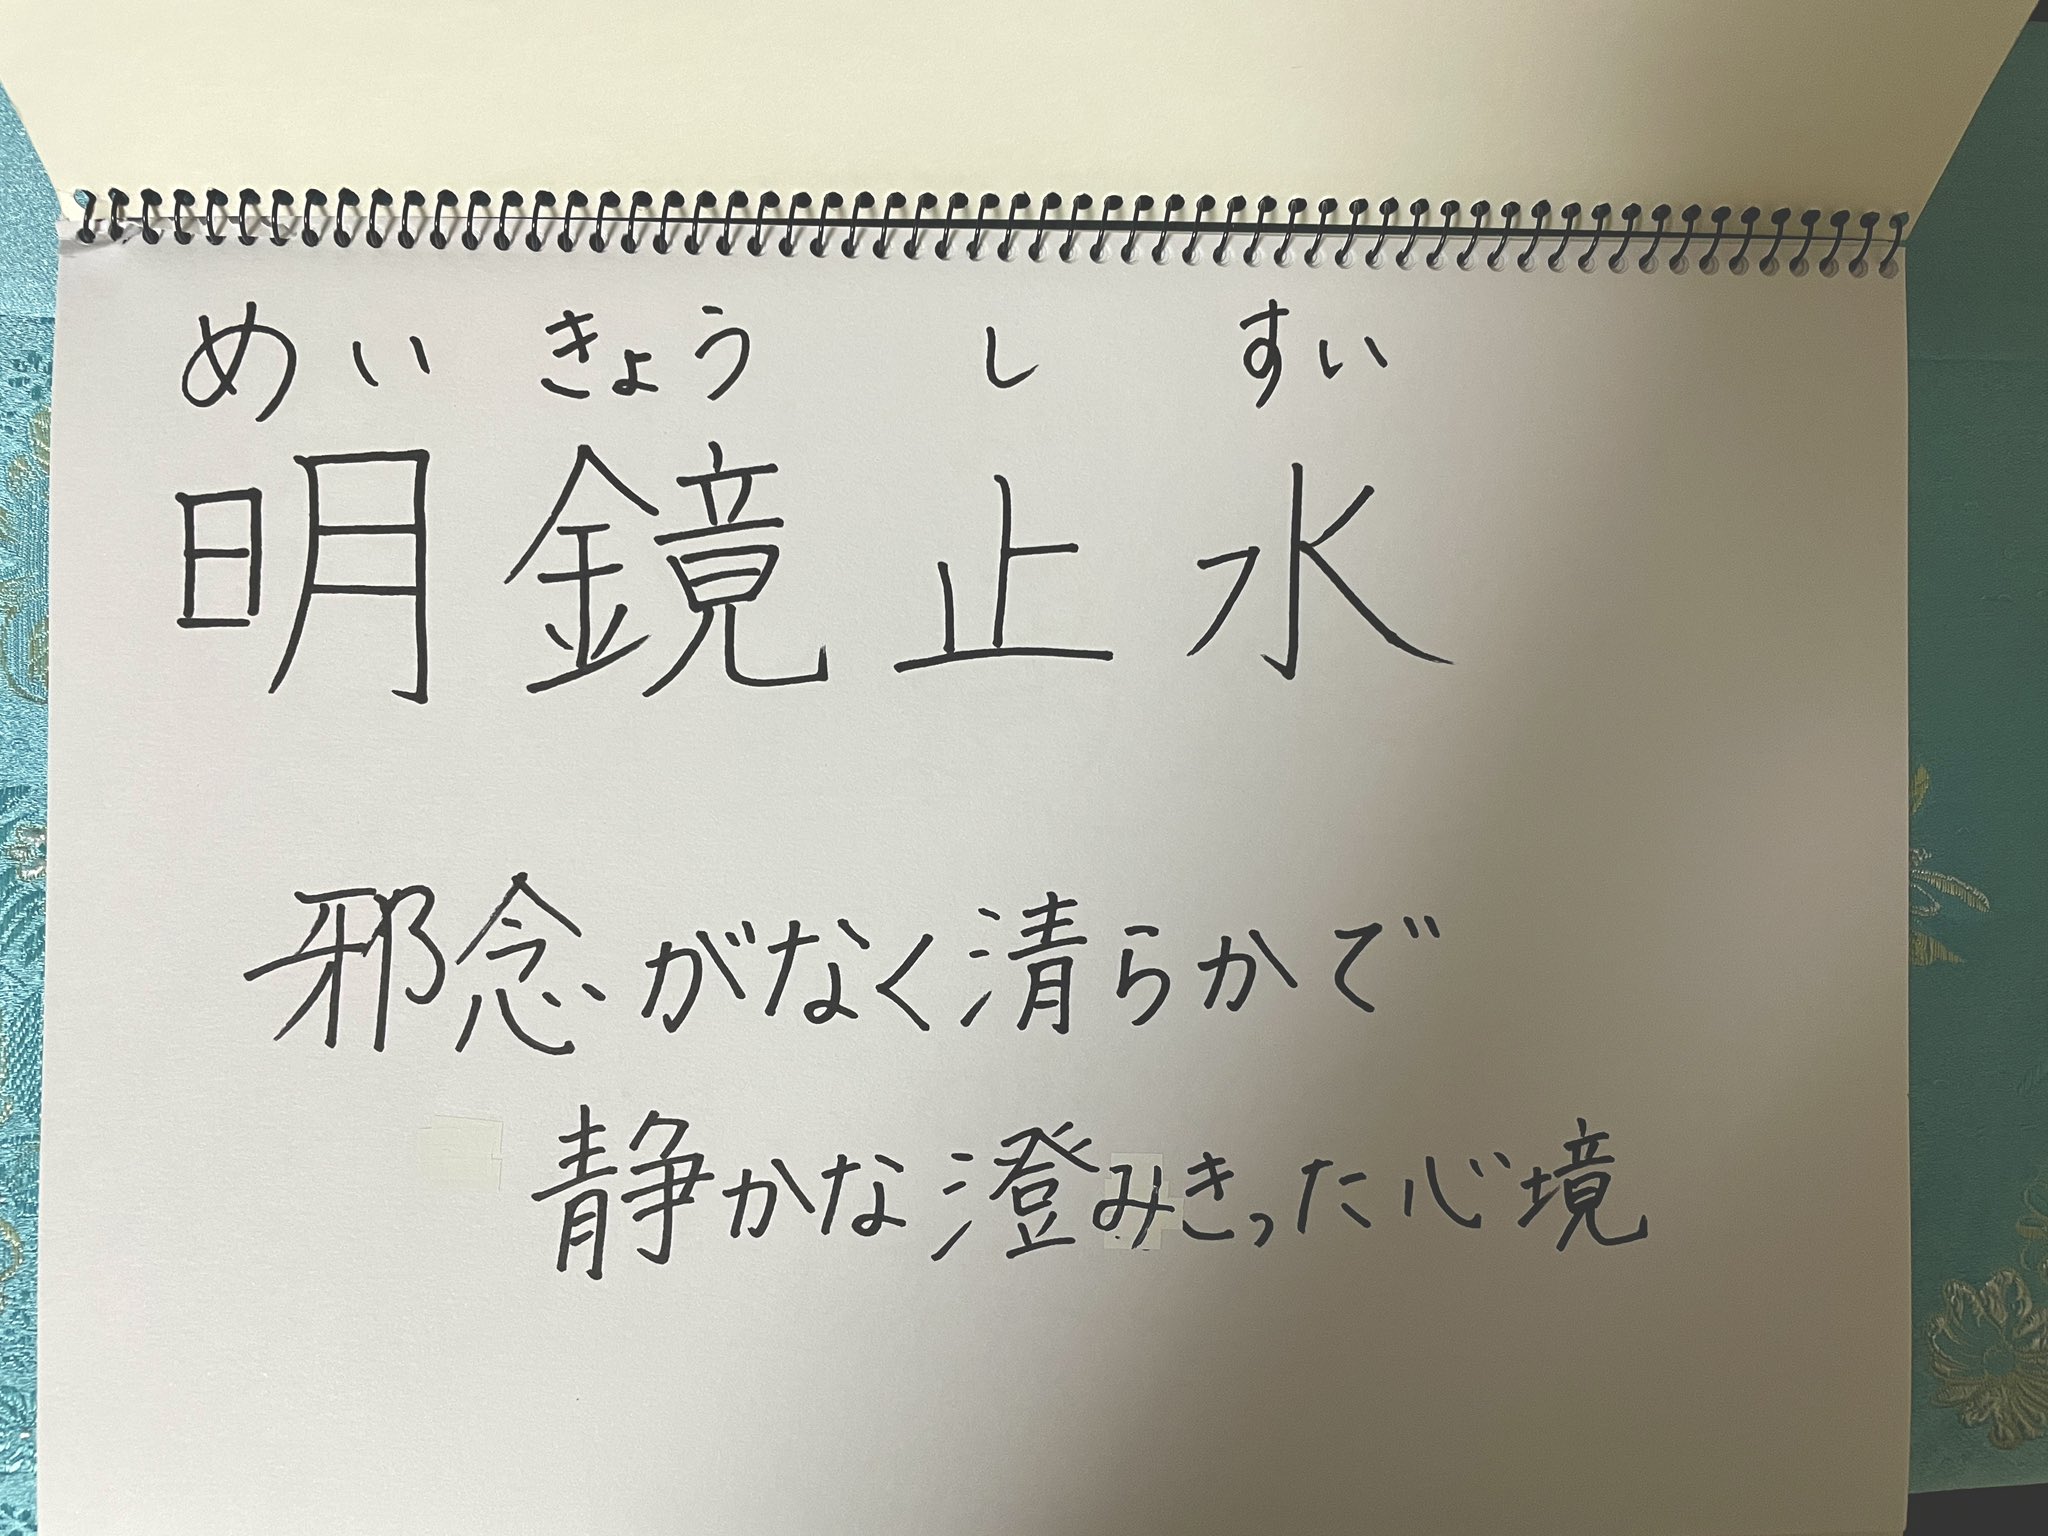 めい きょう し すい
明鏡止水
邪念がなく清らかで
静かな澄みきった心境